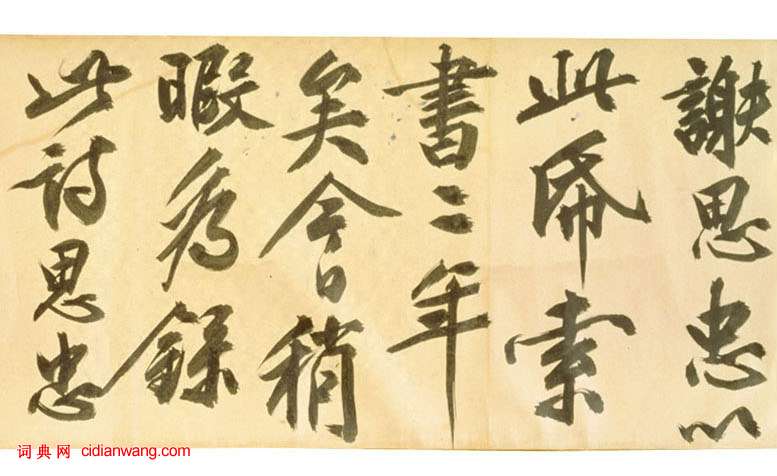 謝思忠以
此帋索
書二年
矣今日稍
暇為録
此詩思忠
词典网 cidianwang.com